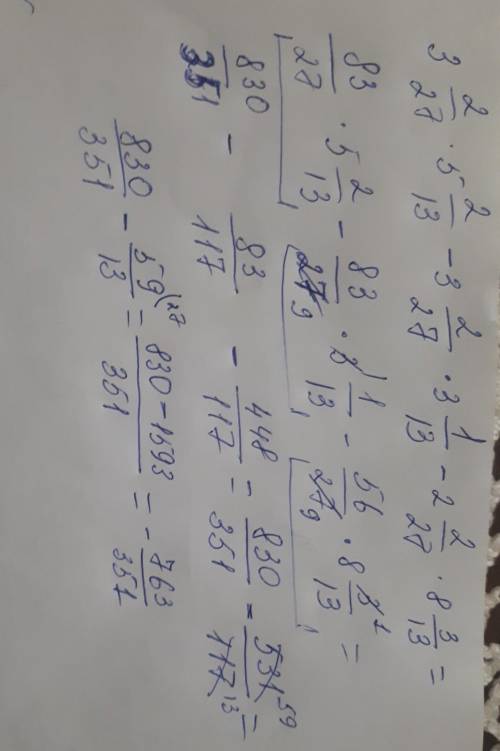 3 2/27 · 5 2/13 - 3 2/27 · 3 1/13 - 2 2/27 · 8 3/13 =
83/27 · 5 2/13 - 83/27 9 · 3 1 1/13 - 56/27 9 · 8 3 1/13 =
830/351 - 83/117 - 448/117 = 830/351 - 531 59/117 13 =
830/351 - 59/13 (27 = 830-1593/351 = - 763/351